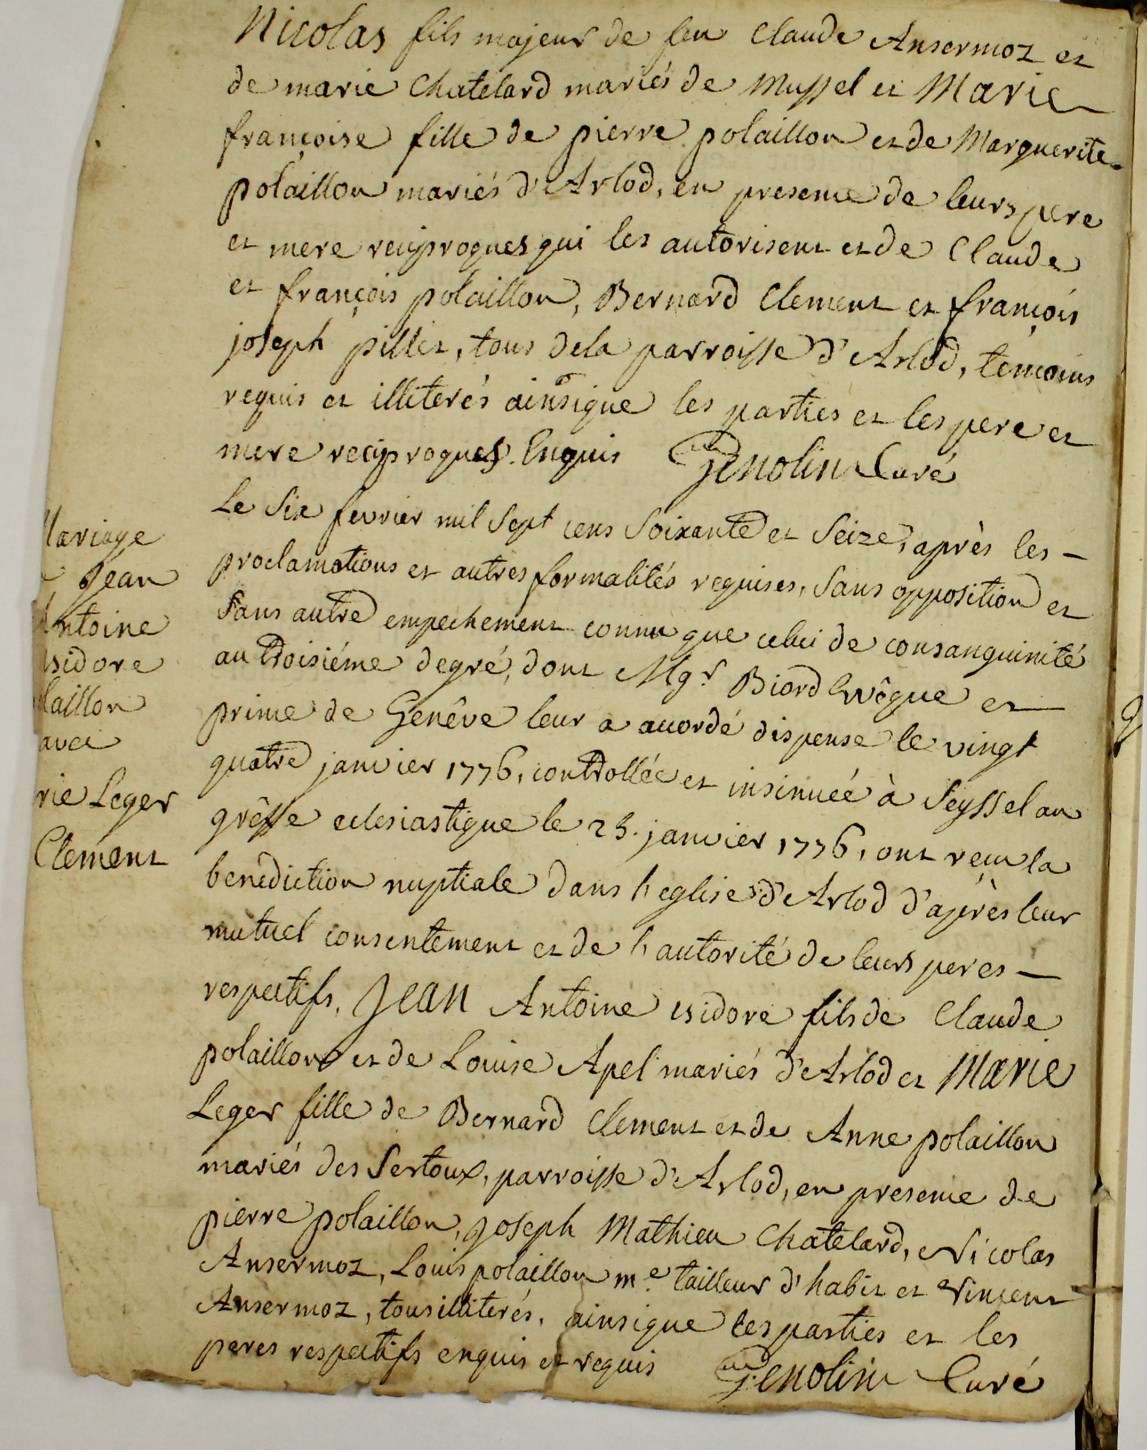 Nicolas fils majeur de feu Claude Ansermoz et
de marie Chatelard mariés de Mussel et Marie
françoise fille de pierre polaillon et de Marguerite
polaillon mariés d'Arlod, en presence de leurs pere
et mere reciproques qui les autorisent et de Claude
et françois polaillon, Bernard Clement et françois
joseph pillet, tous de la parroisse d'Arlod, temoins
requis et illiterés ainsique les parties et les pere et
mere reciproques. Enquis Genolin Curé
Mariage
Jean
Antoine
isidore
laillon
avec
rie Leger
Clement
Le Six fevrier mil Sept cens Soixante et Seize, après les –
proclamations et autres formalités requises, Sans opposition et
Sans autre empechement connu que celui de consanguinité
au troisiéme degré, dont Mgr Biord Evêque et
prince de Genêve leur a accordé dispense le vingt
quatre janvier 1776, controllée et insinuée à Seyssel au
grêffe eclesiastique le 25. janvier 1776, ont reçu la
benediction nuptiale dans l'eglise d'Arlod d'après leur
mutuel consentement et de l'autorité de leurs peres –
respectifs. Jean Antoine isidore fils de Claude
polaillon et de Louise Apel mariés d'Arlod et Marie
Leger fille de Bernard Clement et de Anne polaillon
mariés des Sertoux, parroisse d'Arlod, en presence de
pierre polaillon, joseph Mathieu Chatelard, Nicolas
Ansermoz, Louis polaillon me tailleur d'habit et Vincent
Ansermoz, tous illiterés, ainsique les parties et les
peres respectifs enquis et requis Genolin Curé